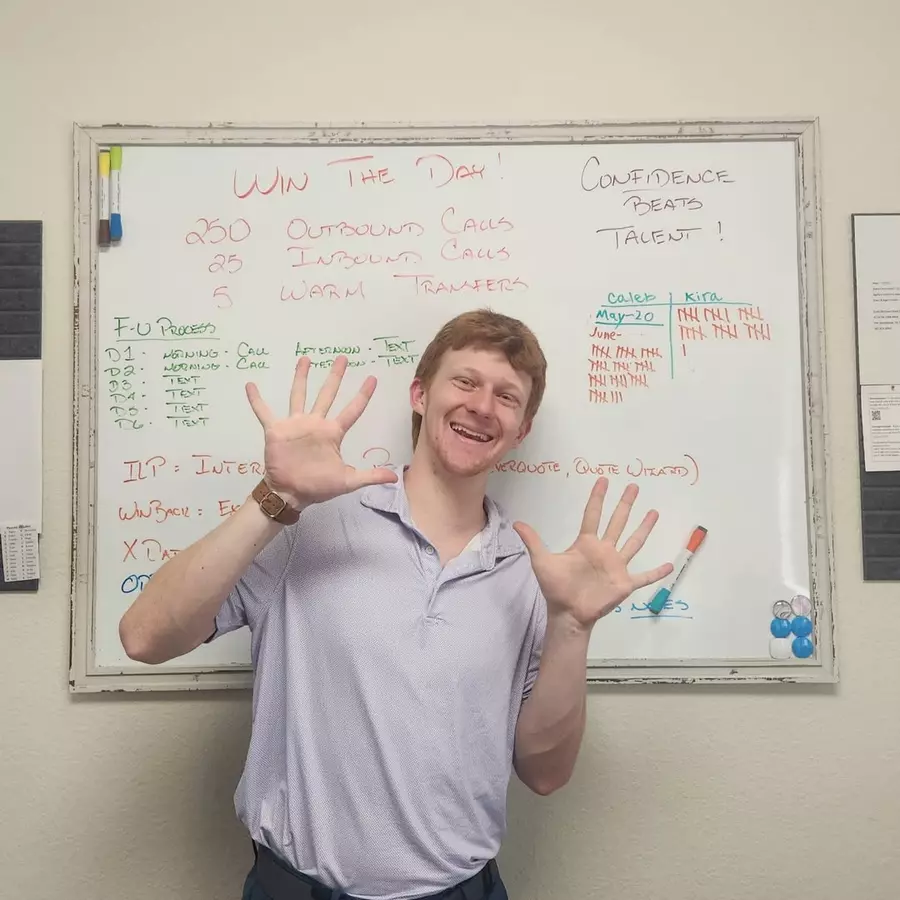 WIN THE DAY!
250 OUTBOUND CALLS
25 INBOUND CALLS
5 WARM TRANSFERS
CONFIDENCE
BEATS
TALENT!
F-U PROCESS
D1 · MORNING · CALL AFTERNOON · TEXT
D2 · MORNING · CALL AFTERNOON · TEXT
D3 · TEXT
D4 · TEXT
D5 · TEXT
D6 · TEXT
Caleb Kira
May-20
June-
ILP = INTER VERQUOTE, QUOTE WIZARD)
WINBACK: EX
X DAT